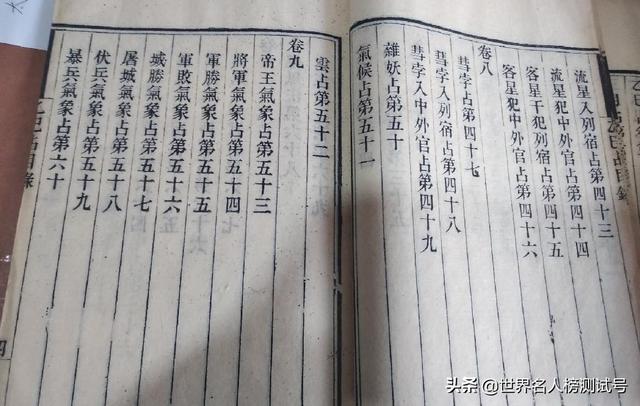 流星入列宿占第四十三
流星犯中外官占第四十四
客星干犯列宿占第四十五
客星犯中外官占第四十六
卷八
彗孛占第四十七
彗孛入列宿占第四十八
彗孛入中外官占第四十九
雜妖占第五十
氣候占第五十一
雲占第五十二
卷九
帝王氣象占第五十三
將軍氣象占第五十四
軍勝氣象占第五十五
軍敗氣象占第五十六
城勝氣象占第五十七
屠城氣象占第五十八
伏兵氣象占第五十九
暴兵氣象占第六十
乙巳占目錄
四
头条 @世界名人榜测试号